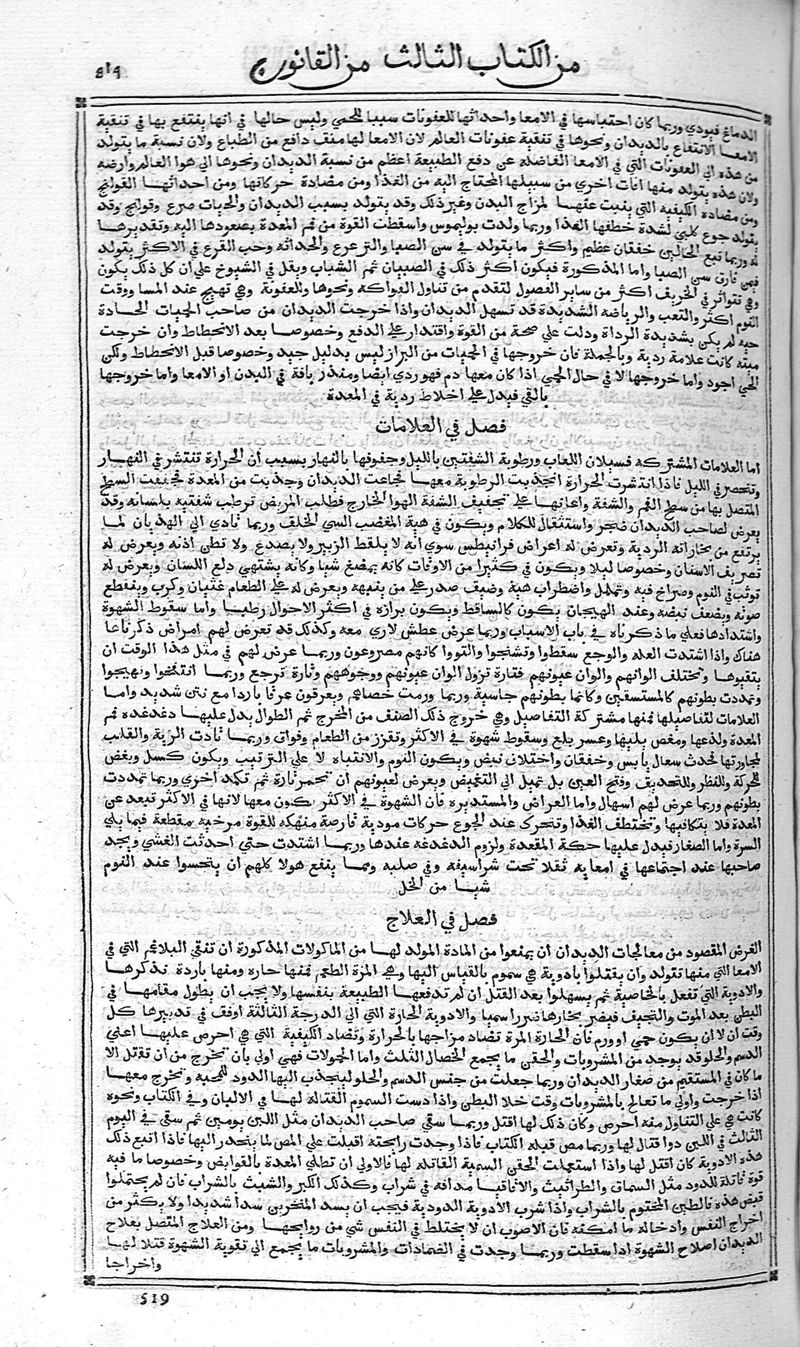 من الكتاب الثالث من القانون
٥١٩
الدماغ فيودي وربما كان احتباسها في الامعا واحداثها للعفونات سببا للحمي وليس حالها في انها ينتفع بها في تنقية
الامعا الانتفاع بالديدان ونحوها في تنقية عفونات العالم لان الامعا لها منقي دافع من الطباع ولان نسبة ما يتولد
من هذه الي العفونات التي في الامعا الفاضله عن دفع الطبيعة اعظم من نسبة الديدان ونحوها الي هوا العالم وارضه
ولان هذه يتولد منها افات اخري من سبيلها المحتاج اليه من الغذا ومن مضادة حركاتها ومن احداثها القولنج
ومن مضادة الكيفيه التي ينبت عنها لمزاج البدن وغير ذلك وقد يتولد بسبب الديدان والحيات صرع وقولنج وقد
يتولد جوع كلبي لشدة خطفها الغذا وربما ولدت بوليموس واسقطت القوة من فم المعدة بصعودها اليه وتقذيرها
له وربما تبع الحالين خفقان عظيم واكثر ما يتولد في سن الصبا والترعرع والحداثه وحب القرع في الاكثر يتولد
فيمن فارق سن الصبا واما المذكورة فيكون اكثر ذلك في الصبيان ثم الشباب ويقل في الشيوخ علي ان كل ذلك يكون
وهي تتواتر في الخريف اكثر من ساير الفصول لتقدم من تناول الفواكه ونحوها وللعفونة وهي تهيج عند المسا ووقت
النوم اكثر والتعب والرياضه الشديدة قد تسهل الديدان واذا خرجت الديدان من صاحب الحميات الحادة
حيه لم يكن بشديدة الرداة ودلت علي صحة من القوة واقتدار علي الدفع وخصوصا بعد الانحطاط وان خرجت
ميته كانت علامة ردية وبالجملة فان خروجها في الحميات من البراز ليس بدليل جيد وخصوصا قبل الانحطاط ولكن
الحي اجود واما خروجها لا في حال الحمي اذا كان معها دم فهو ردي ايضا ومنذر بافة في البدن او الامعا واما خروجها
بالقي فيدل علي اخلاط ردية في المعدة
فصل في العلامات
اما العلامات المشتركه فسيلان اللعاب ورطوبة الشفتين بالليل وجفوفها بالنهار بسبب ان الحرارة تنتشر في النهار
وتنحصر في الليل فاذا انتشرت الحرارة انجذبت الرطوبة معها فجاعت الديدان وجذبت من المعدة فجففت السطح
المتصل بها من سطح الفم والشفة واعانها علي تجفيف الشفة الهوا الخارج فظلب المريض ترطب شفتيه بلسانه وقد
يعرض لصاحب الديدان ضجر واستثقال للكلام ويكون في هية المغضب السي الخلف وربما تادي الي الهذيان لما
يرتفع من بخاراته الردية وتعرض له اعراض فرانيطس سوي انه لا يلقط الزبير ولا يصدع ولا تطن اذنه ويعرض له
تصريف الاسنان وخصوصا ليلا ويكون في كثيرا من الاوقات كانه يمضغ شيا وكانه يشتهي دلع اللسان ويعرض له
توثب في النوم وصراخ فيه وتململ واضطراب هية وضيف صدر علي من ينبهه ويعرض له علي الطعام غثيان وكرب وينقطع
صوته ويضعف نبضه وعند الهيجان يكون كالساقط ويكون برازه في اكثر الاحوال رطبا واما سقوط الشهوة
واشتدادها فعلي ما ذكرناه في باب الاسباب وربما عرض عطش لاري معه وكذلك قد تعرض لهم امراض ذكرناها
هناك واذا اشتدت العله والوجع سقطوا وتشنجوا والتووا كانهم مصروعون وربما عرض لهم في مثل هذا الوقت ان
يتقيوها وتختلف الوانهم والوان عيونهم فتارة تزول الوان عيونهم ووجوههم وتارة ترجع وربما انتفخوا وتهيجوا
وتمددت بطونهم كالمستسقين وكانما بطونهم جاسية وربما ورمت خصاهم ويعرقون عرقا باردا مع نتن شديد واما
العلامات لتفاصيلها فمنها مشتركة التفاصيل وهي خروج ذلك الصنف من المخرج ثم الطوال يدل عليها دغدغه فم
المعدة ولذعها ومغص يليها وعسر بلع وسقوط شهوة في الاكثر وتقزز من الطعام وفواق وربما تادت الرية والقلب
لمجاورتها فحدث سعال يابس وخفقان واختلاف نبض ويكون النوم والانتباه لا علي الترتيب ويكون كسل وبغض
للحركة وللنظر وللتحديق وفتح العين بل تميل الي التغميض ويعرض لعيونهم ان تحمر تارة ثم تكمد اخري وربما تمددت
بطونهم وربما عرض لهم اسهال واما العراض والمستديره فان الشهوة في الاكثر يكون معها لانها في الاكثر تبعد عن
المعدة فلا ينكافيها وتختطف الغذا وتتحرك عند الجوع حركات موديه قارصة منهكه للقوة مرخيه مقطعة فيما يلي
السرة واما الصغار فيدل عليها حكة المقعدة ولزوم الدغدغه عندها وربما اشتدت حتي احدثت الغشي ويجد
صاحبها عند اجتماعها في امعايه ثقلا تحت شراسيفه وفي صلبه ومما ينفع هولا كلهم ان يتحسوا عند النوم
شيا من الخل
فصل في العلاج
الغرض المقصود من معالجات الديدان ان يمنعوا من المادة المولد لها من الماكولات المذكورة ان تنقي البلاغم التي في
الامعا التي منها تتولد وان يقتلوا بادوية هي سموم بالقياس اليها وهي المرة الطعم فمنها حاره ومنها باردة نذكرها
والادوية التي تفعل بالخاصية ثم يسهلوا بعد القتل ان لم تدفعها الطبيعة بنفسها ولا يجب ان يطول مقامها في
البطن بعد الموت والتجفيف فيضر بخارها ضررا سميا والادوية الحارة التي الي الدرجة الثالثة اوفق في تدبيرها كل
وقت ان لا ان يكون حمي او ورم فان الحارة المرة تضاد مزاجها بالحرارة وتضاد الكيفية التي هي احرص عليها اعني
الدسم والحلو قد يوجد من المشروبات والحقن ما يجمع الخصال الثلث واما الحمولات فهي اولي بان تخرج من ان تقتل الا
ما كان في المستقيم من صغار الديدان وربما جعلت من جنس الدسم والحلو لينجذب اليها الدود للمحبه وتخرج معها
اذا خرجت واولي ما تعالج بالمشروبات وقت خلا البطن واذا دست السموم القتاله لها في الالبان وفي الكباب ونحوه
كانت هي علي التناول منه احرص وكان ذلك لها اقتل وربما سقي صاحب الديدان مثل اللبن يومين ثم سقي في اليوم
الثالث في اللبن دوا قتال لها وربما مص قبله الكباب فاذا وجدت رايحته اقبلت علي المص لما ينحدر اليها فاذا اتبع ذلك
هذه الادوية كان اقتل لها واذا استعملت الحقن السمية القاتله لها فالاولي ان تطلي المعدة بالقوابض وخصوصا ما فيه
قوة قاتلة للدود مثل السماق والطراثيث والاقاقيا مدافه في شراب وكذلك الكبر والشبث بالشراب فان لم يحتملوا
قبض هذه فالطين المختوم بالشراب واذا شرب الادوية الدودية فيجب ان يسد المنخرين سدا شديدا ولا يكثر من
اخراج النفس وادخاله ما امكنه فان الاصوب ان لا يختلط في النفس شي من روايحها ومن العلاج المتصل بعلاج
الديدان اصلاح الشهوة اذا سقطت وربما وجدت في الضمادات والمشروبات ما يجمع الي تقوية الشهوة قتلا لها
واخراجا
519